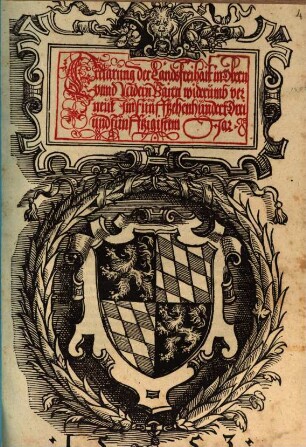 Erclärung der Landsfreihait in Obern
vnnd Nidern Bairn widerumb ver
neut Im fünfftzehenhundert drei
undfünfftzigistem Jar
1 5 5 3